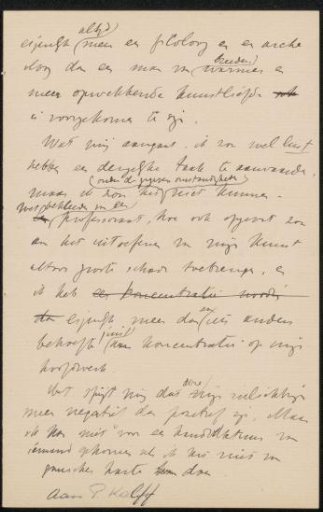 altijd
eigenlijk meer een filoloog en een archeo
loog dan een man van warmere en
breedere
meer opwekkende kunstliefde
is voorgekomen te zijn.
Wat mij aangaat, ik zou wel lust
hebben een dergelijke taak te aanvaarden,
(onder de gegeven omstandigheden)
maar ik zou het niet kunnen.
Het bekleeden van een
professoraat, hoe ook opgevat zou
aan het uitoefenen van mijn kunst
altoos groote schade toebrengen, en
ik heb een koncentratie noodig
eigenlijk meer dan iets anders
juist
behoefte aan koncentratie op mijn
hoofdwerk
Het spijt mij dat mijn inlichting
meer negatief dan positief is, Maar
ik kan niet voor een kandidatuur van
iemand opkomen als ik het niet van
ganscher harte kan doen
Aan G Kalff